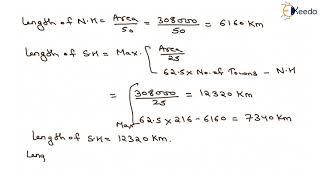 Ekeeda
Length of N.H = Area/50 = 308000/50 = 6160 Km
Length of S.H = Max. [ Area/25
62.5 x No. of Towns - N.H
= [ 308000/25 = 12320 Km
Max 62.5 x 216 - 6160 = 7340 Km
Length of S.H = 12320 Km.
Leng